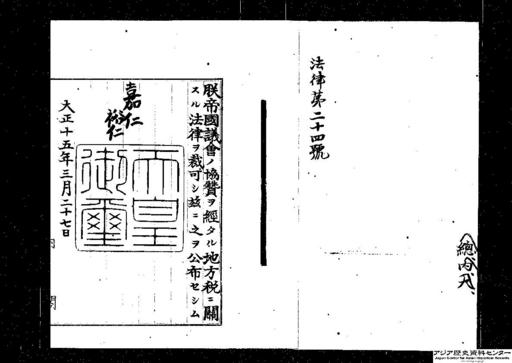 法律第二十四號
朕帝國議會ノ協贊ヲ經タル地方税ニ關
スル法律ヲ裁可シ玆ニ之ヲ公布セシム
嘉仁
裕仁
天皇御璽
大正十五年三月二十七日
內閣
アジア歴史資料センター
Japan Center for Asian Historical Records